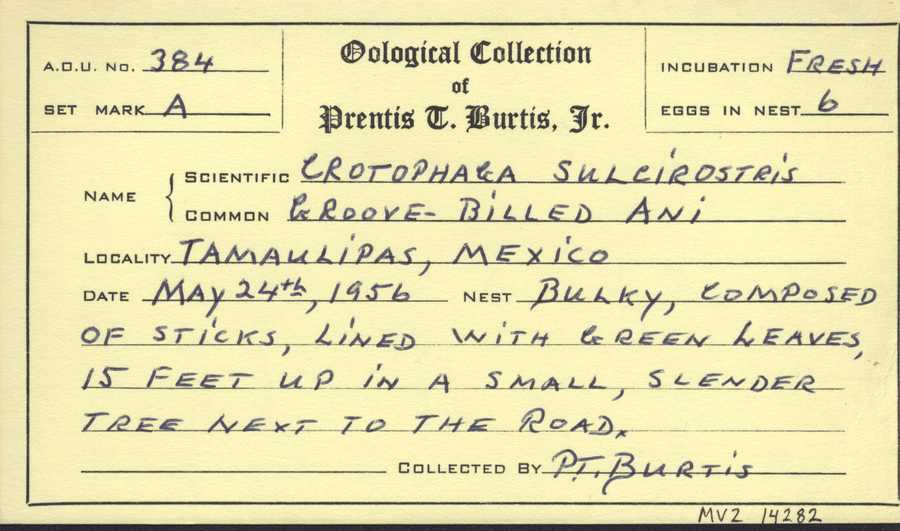 A.O.U. NO. 384
SET MARK A
Oological Collection
of
Prentis T. Burtis, Jr.
INCUBATION FRESH
EGGS IN NEST 6
NAME
SCIENTIFIC CROTOPHAGA SULCIROSTRIS
COMMON GROOVE-BILLED ANI
LOCALITY TAMAULIPAS, MEXICO
DATE MAY 24th, 1956 NEST BULKY, COMPOSED
OF STICKS, LINED WITH GREEN LEAVES,
15 FEET UP IN A SMALL, SLENDER
TREE NEXT TO THE ROAD.
COLLECTED BY P.T. BURTIS
MVZ 14282